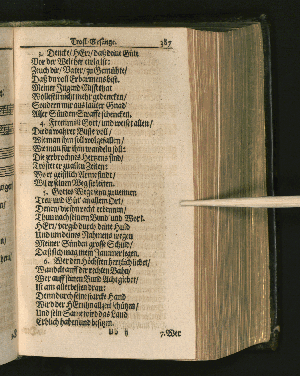 Trost-Gesänge. 387
3. Dencke/ HErr/ daß deine Güte
Von der Welt her ewig ist:
Zeuch dir/ Vater/ zu Gemüthe/
Daß du voll Erbarmens bist.
Meiner Jugend Missethat
Wollest du nicht mehr gedencken/
Sondern mir aus lauter Gnad
Aller Sünden Straffe schencken.
4. Fromm ist Gott/ und weist allen/
Die da wahrer Busse voll/
Wie man ihm soll wolgefallen/
Wie man für ihm wandeln soll:
Die zerbrochnes Hertzens sind/
Tröstet er zu allen Zeiten:
Wo er geistlich Arme findt/
Wil er seinen Weg sie leiten.
5. Gottes Wege
Treu und Güt an allem Ort/
Denen/ die
Thun nach seinem Bund und Wort.
HErr/ vergib durch deine Huld
Und um deines Nahmens wegen
Meiner Sünden grosse Schuld/
Daß sich mag mein Jammer legen.
6. Wer den Höchsten hertzlich liebet/
Wandelt auff der rechten Bahn/
Wer auff seinen Bund Acht giebet/
Ist am allerbesten dran:
Denn durch seine starcke Hand
Wird der HErr ihn allzeit schützen/
Und sein Same wird das Land
Erblich haben und besitzen.
7. Wer